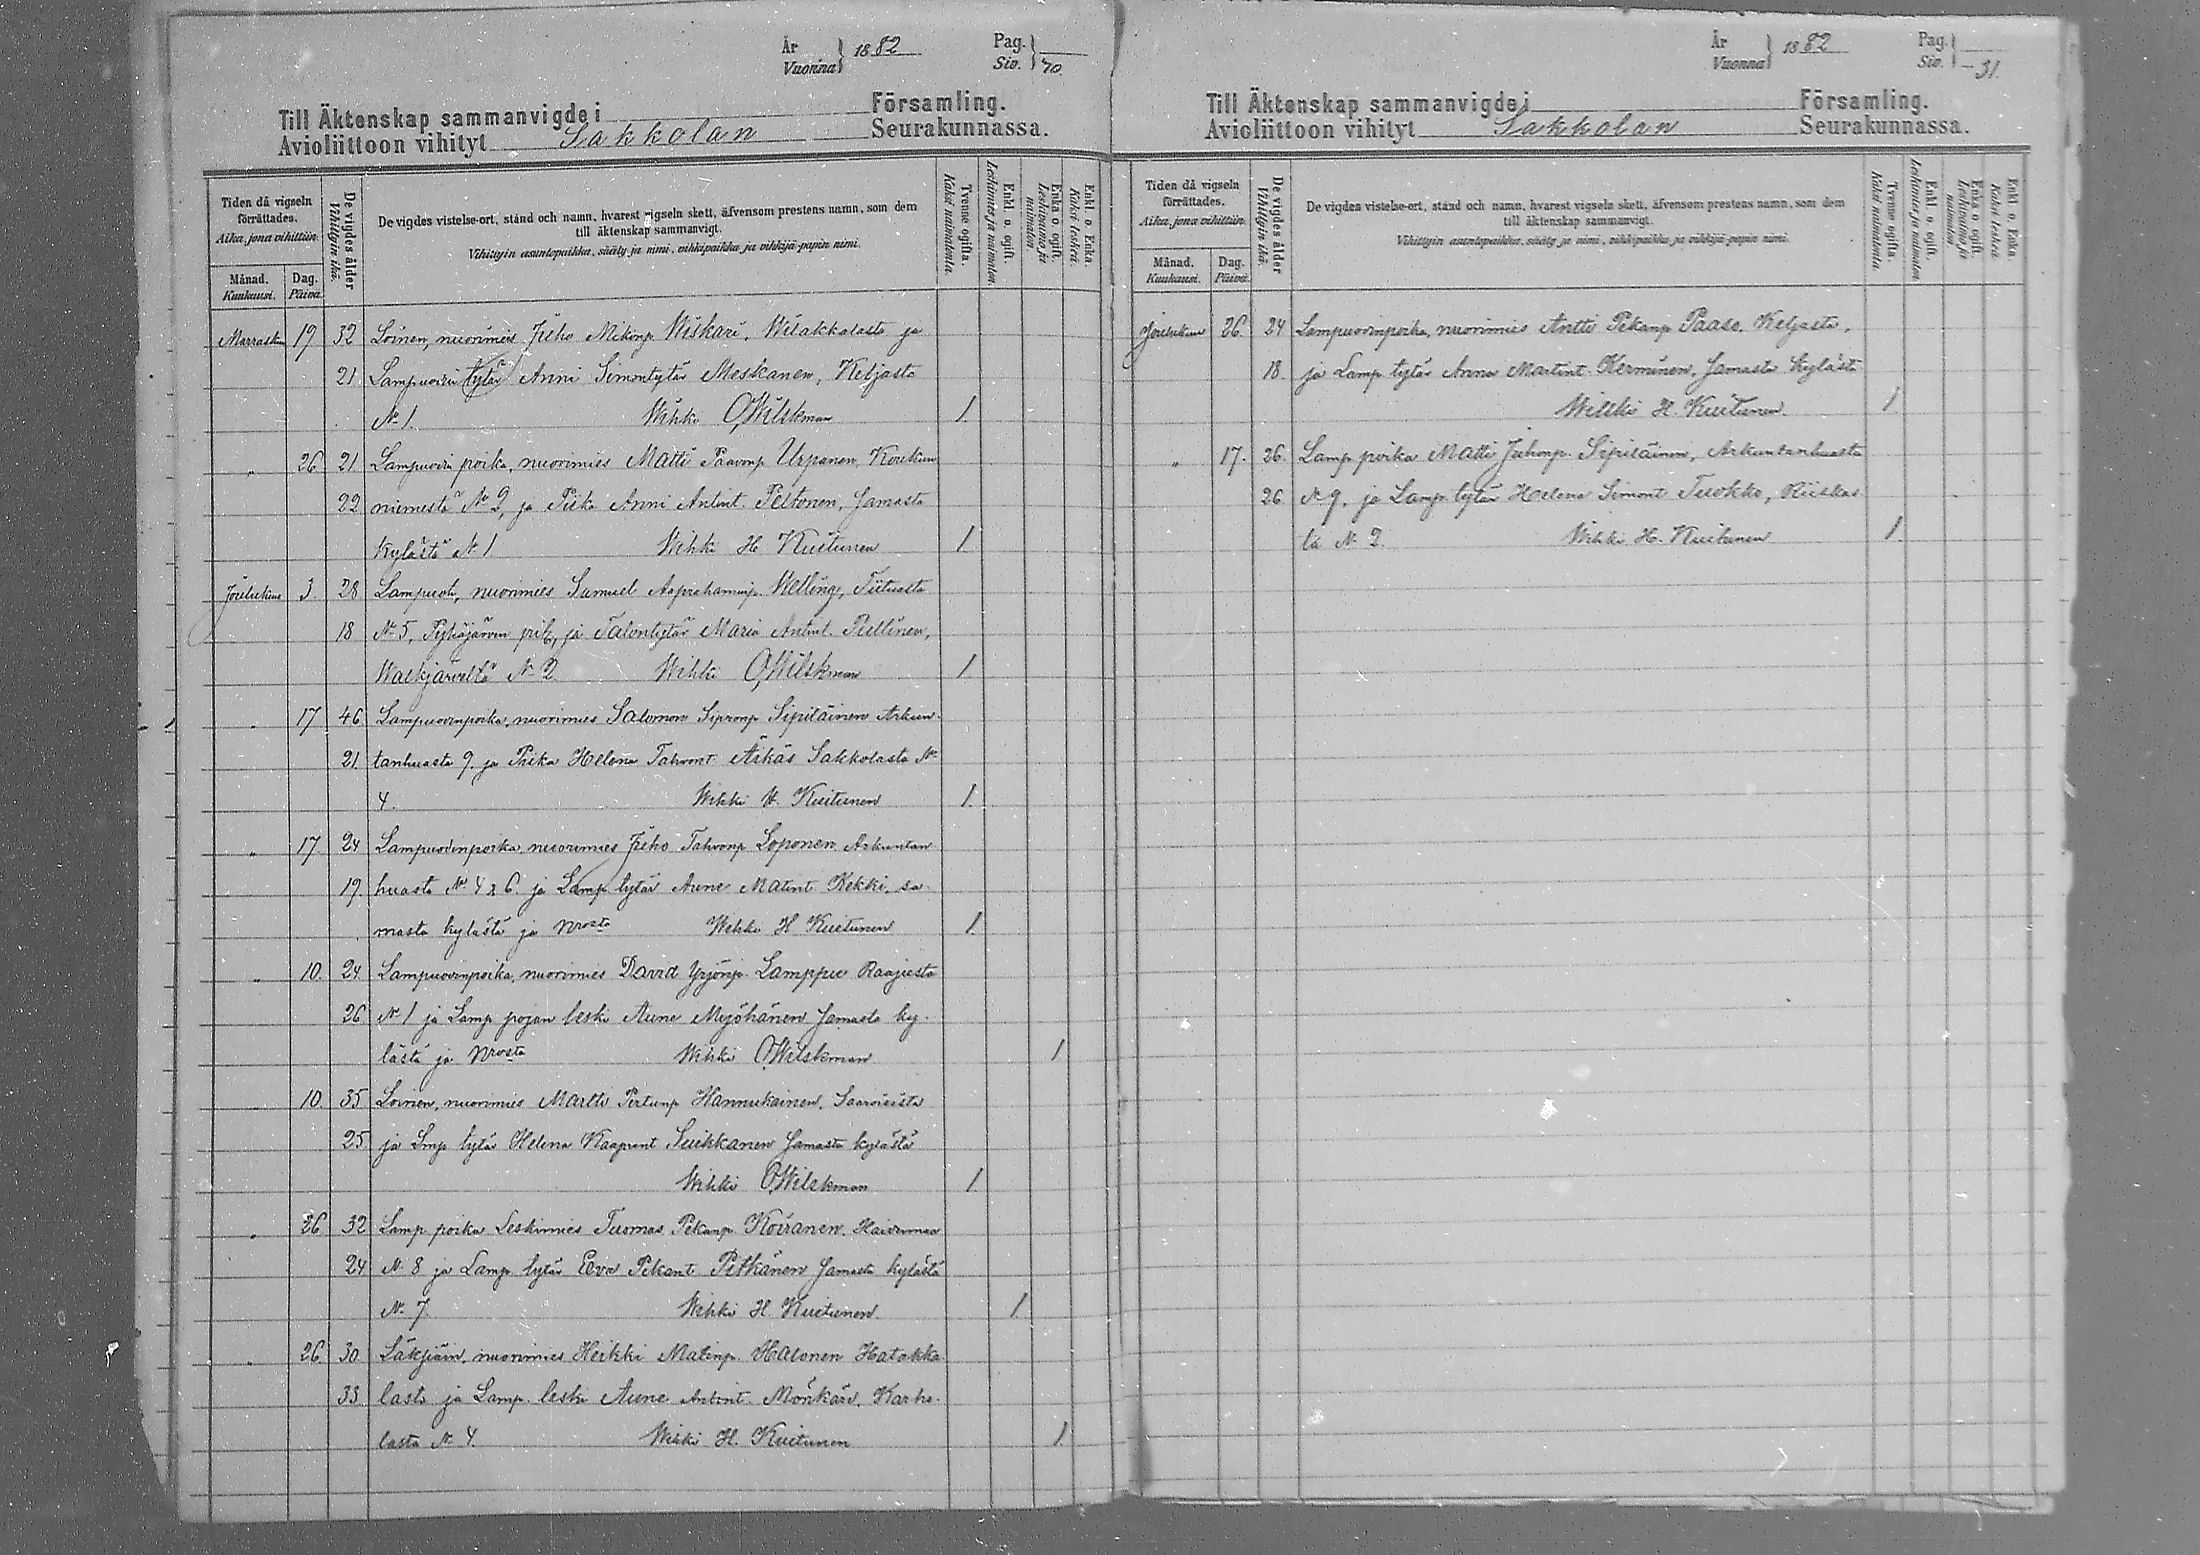 År
Vuonna } 1882
Pag.
Siv. } 70.
Till Äktenskap sammanvigde i Församling.
Avioliittoon vihityt Sakkolan Seurakunnassa.
Tiden då vigseln förrättades.
Aika, jona vihittiin.
Månad.
Kuukausi.
Dag.
Päivä.
De vigdes ålder
Vihittyin ikä.
De vigdes vistelse-ort, stånd och namn, hvarest vigseln skett, äfvensom prestens namn, som dem
till äktenskap sammanvigt.
Vihittyin asuntopaikka, sääty ja nimi, vihkipaikka ja vihkijä-papin nimi.
Tvenne ogifta.
Kaksi naimatonta.
Enkl. o. ogift.
Leskimies ja naimaton.
Enka o. ogift.
Leskivaimo ja naimaton.
Enkl. o. Enka.
Kaksi leskeä.
Marraskuu 19 32 Loinen, nuorimies Juho Mikonp Wiskari, Wilakkalasta ja
21 Lampuodin tytär Anni Simontytär Meskanen, Keljasta
№ 1. Wihki O Wilskman 1.
" 26 21 Lampuodin poika, nuorimies Matti Paavonp Urpanen, Koukun
22 niemestä № 2, ja Piika Anni Antint. Peltonen, samasta
kylästä № 1 Wihki H Kuitunen 1.
Joulukuu 3. 28 Lampuoti, nuorimies Samuel Aaprahaminp. Welling, Tiitualta
18 № 5, Pyhäjärven pit, ja Talontytär Maria Antint. Pullinen,
Waskjärveltä № 2 Wihki O Wilskman 1.
" 17 46. Lampuodinpoika, nuorimies Salomon Sipronp Sipiläinen Arkun-
21. tanhuasta 9. ja Piika Helena Tahvont Äikäs Sakkolasta №
4. Wihki H. Kuitunen 1.
" 17. 24 Lampuodinpoika, nuorimies Juho Tahvonp Loponen Arkuntan
19. huasta № 4 & 6. ja Lamp tytär Aune Matint Kekki, sa-
masta kylästä ja Nrosta Wihki H Kuitunen 1.
" 10. 24. Lampuodinpoika, nuorimies David Yrjönp. Lamppu Raajusta
26 № 1 ja Lamp pojan leski Aune Myöhänen samasta ky-
lästä ja Nrosta Wihki O Wilskman 1
" 10. 35 Loinen, nuorimies Martti Pertunp Hannukainen, Saaroisista
25. ja Lmp tytär Helena Kaaprent Suikkanen samasta kylästä
Wihki O Wilskman 1.
" 26 32 Lamp poika Leskimies Tuomas Pekanp Koiranen,
24. № 8 ja Lamp tytär Eeva Pekant Pitkänen samasta kylästä
№ 7. Wihki H Kuitunen 1
" 26 30. nuorimies Heikki Matinp. Halonen Hatakka
33 lasta ja Lamp. leski Aune Antint. Mönkäre, Karho-
lasta № 4. Wihki H. Kuitunen 1.
År
Vuonna } 1882
Pag.
Siv. } 31.
Till Äktenskap sammanvigde i Församling.
Avioliittoon vihityt Sakkolan Seurakunnassa.
Tiden då vigseln förrättades.
Aika, jona vihittiin.
Månad.
Kuukausi.
Dag.
Päivä.
De vigdes ålder
Vihittyin ikä.
De vigdes vistelse-ort, stånd och namn, hvarest vigseln skett, äfvensom prestens namn, som dem
till äktenskap sammanvigt.
Vihittyin asuntopaikka, sääty ja nimi, vihkipaikka ja vihkijä-papin nimi.
Tvenne ogifta.
Kaksi naimatonta.
Enkl. o. ogift.
Leskimies ja naimaton.
Enka o. ogift.
Leskivaimo ja naimaton.
Enkl. o. Enka
Kaksi leskeä.
Joulukuu 26. 24 Lampuodinpoika, nuorimies Antti Pekanp Paaso. Keljasta,
18. ja Lamp tytär Anna Martint. Kerminen, samasta kylästä
Wihki H Kuitunen 1
" 17. 26. Lamp poika Matti Juhonp. Sipiläinen, Arkuntanhuasta
26. № 9. ja Lamp tytär Helena Simont Tuokko, Riiskas
ta № 2. Wihki H. Kuitunen 1.